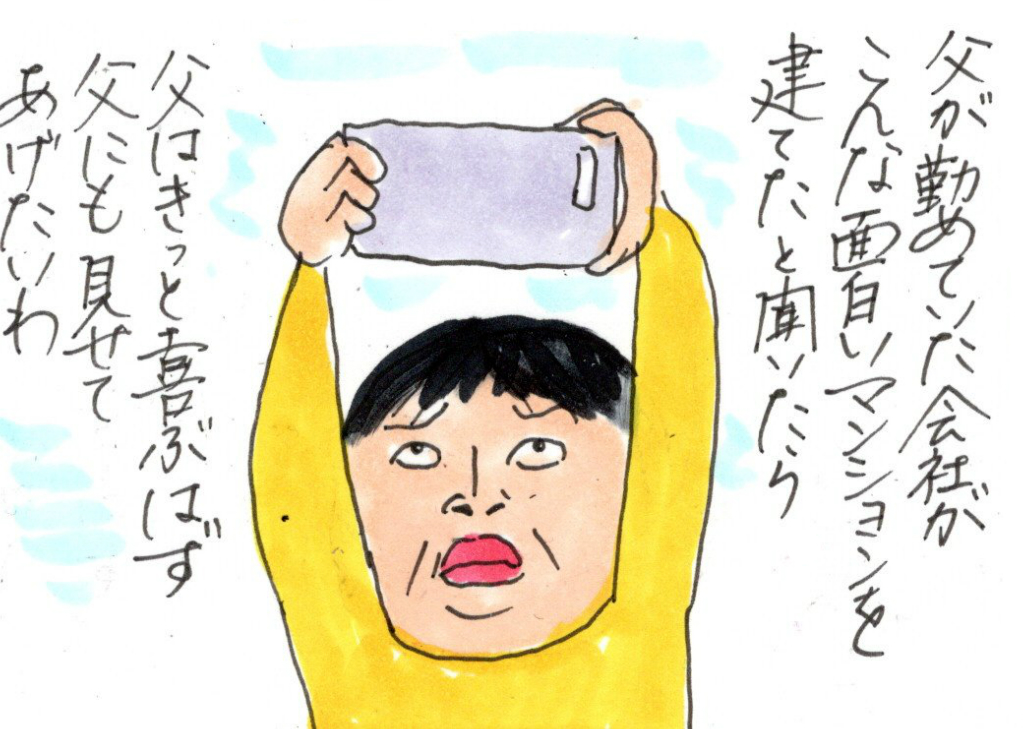 父が勤めていた会社が
こんな面白いマンションを
建てたと聞いたら
父はきっと喜ぶはず
父にも見せて
あげたいわ